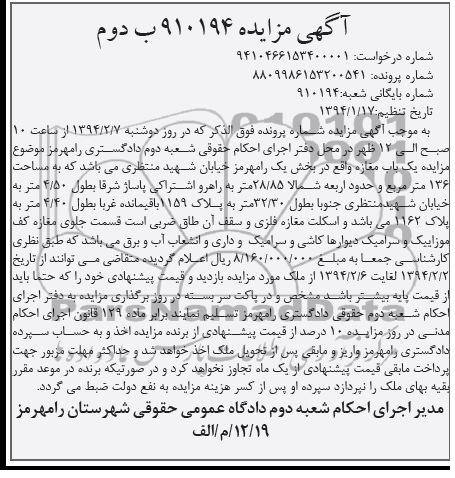 آگهی مزایده ۹۱۰۱۹۴ ب دوم
شماره درخواست: ۹۴۱۰۴۶۶۱۵۳۴۰۰۰۰۱
شماره پرونده: ۸۸۰۹۹۸۶۱۵۳۲۰۰۵۴۱
شماره بایگانی شعبه: ۹۱۰۱۹۴
تاریخ تنظیم: ۱۳۹۴/۱/۱۷
به موجب آگهی مزایده شماره پرونده فوق الذکر که در روز دوشنبه ۱۳۹۴/۲/۷ از ساعت ۱۰
صبح الی ۱۲ ظهر در محل دفتر اجرای احکام حقوقی شعبه دوم دادگستری رامهرمز موضوع
مزایده یک باب مغازه واقع در بخش یک رامهرمز خیابان شهید منتظری می باشد که به مساحت
۱۳۶ متر مربع و حدود اربعه شمالا ۲۸/۸۵متر به راهرو اشتراکی پاساژ شرقا بطول ۴/۵۰ متر به
خیابان شهیدمنتظری جنوبا بطول ۳۲/۳۰متر به پلاک ۱۱۵۹باقیمانده غربا بطول ۴/۴۰ متر به
پلاک ۱۱۶۲ می باشد و اسکلت مغازه فلزی و سقف آن طاق ضربی است قسمت جلوی مغازه کف
موزاییک و سرامیک دیوارها کاشی و سرامیک و داری و انشعاب آب و برق می باشد که طبق نظری
کارشناسی جمعا به مبلغ ۸/۱۶۰/۰۰۰/۰۰۰ ریال اعلام گردیده متقاضی می توانند از تاریخ
۱۳۹۴/۲/۲ لغایت ۱۳۹۴/۲/۶ از ملک مورد مزایده بازدید و قیمت پیشنهادی خود را که حتما باید
از قیمت پایه بیشتر باشد مشخص و در پاکت سر بسته در روز برگذاری مزایده به دفتر اجرای
احکام شعبه دوم حقوقی دادگستری رامهرمز تسلیم نمایند برابر ماده ۱۲۹ قانون اجرای احکام
مدنی در روز مزایده ۱۰ درصد از قیمت پیشنهادی از برنده مزایده اخذ و به حساب سپرده
دادگستری رامهرمز واریز و مابقی پس از تحویل ملک اخذ خواهد شد و حداکثر مهلت مزبور جهت
پرداخت مابقی قیمت پیشنهادی از یک ماه تجاوز نخواهد کرد و در صورتیکه برنده در موعد مقرر
بقیه بهای ملک را نپردازد سپرده او پس از کسر هزینه مزایده به نفع دولت ضبط می گردد.
مدیر اجرای احکام شعبه دوم دادگاه عمومی حقوقی شهرستان رامهرمز
۱۲/۱۹/م/الف